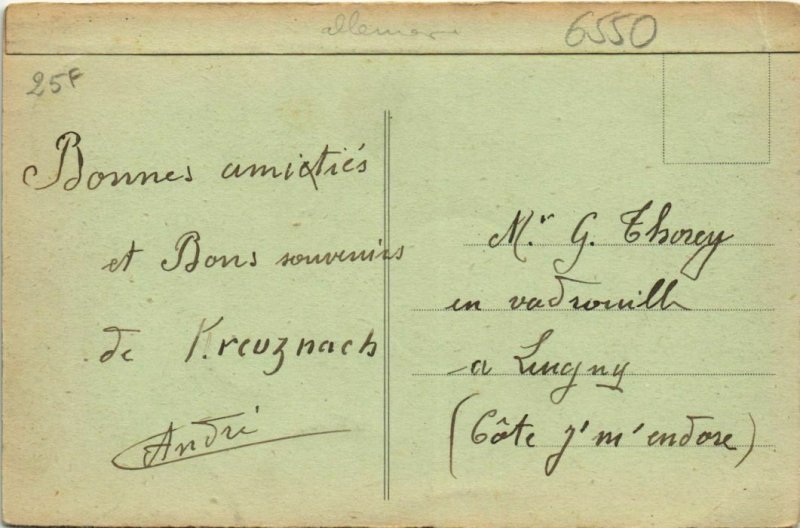 allemagne
6550
25F
Bonnes amitiés
et Bons souvenirs
de Kreuznach
André
M.r G. Thorey
en vadrouille
a Leugny
(Côte j'm'endore)